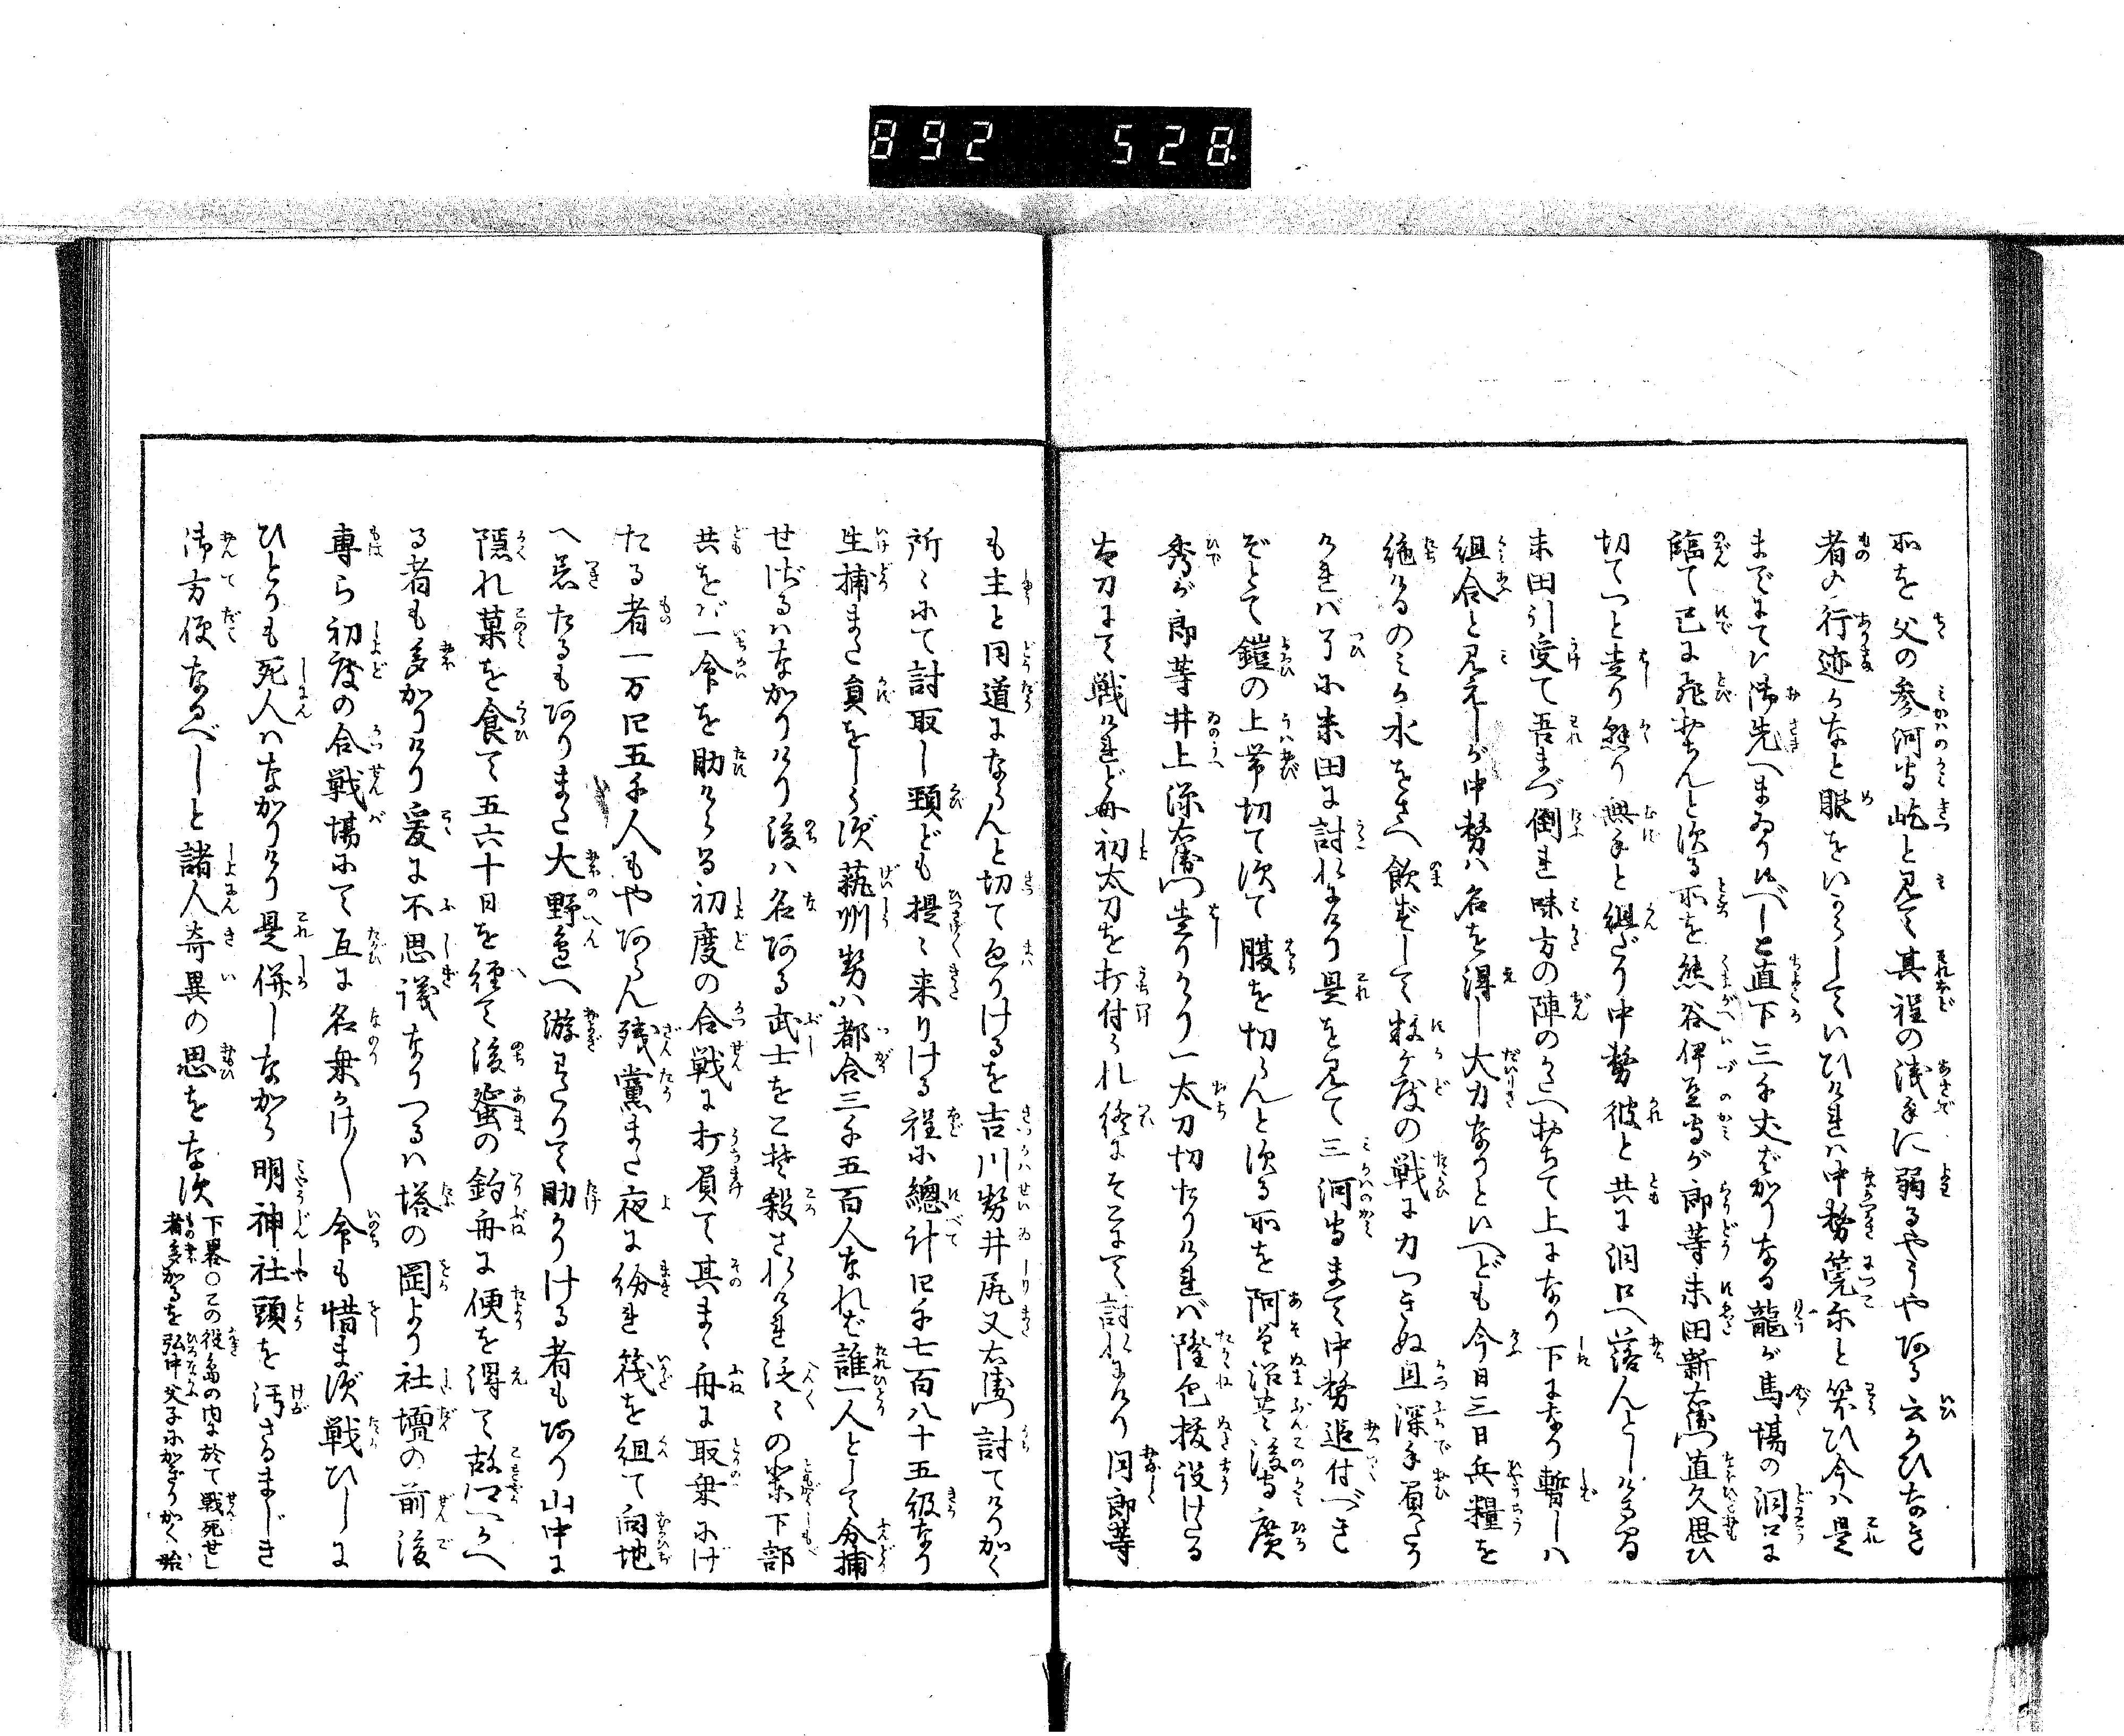 892 528
所を父の参河守屹と見て其程の浅手に弱るやうやある云かひなき
者の行迹かなと眼をいからしていひければ中務莞尓と笑ひ今は是
までにて候御先へまゐり候べしと直下三千丈ばかりなる龍が馬場の洞口に
臨て已に飛おちんとする所を熊谷伊豆守が郎等末田新右衛門直久思ひ
切てつと走り懸り無手と組だり中務彼と共に洞口へ落んとしけるを
末田引受て吾まづ倒れ味方の陣のかたへおちて上になり下になり暫しハ
組合と見えしが中務ハ名を得し大力なりといへども今日三日兵糧を
絶けるのミか水をさへ飲ずして数ヶ度の戦に力つきぬ且深手負たり
ければ了に末田に討れにけり是を見て三河守まで中務追付べき
ぞとて鎧の上帯切て捨て腹を切らんとする所を阿曽沼豊後守廣
秀が郎等井上源右衛門走りかゝり一太刀切たりければ隆包抜設けたる
太刀にて戦けれど毎初太刀を打付られ終にそこにて討れにけり同郎等
も主と同道にならんと切て廻りけるを吉川勢井尻又右衛門討てけりかく
所々にて討取し頸ども提々来りける程に総計四千七百八十五級なり
生捕また員をしらず藝州勢ハ都合三千五百人なれど誰一人として分捕
せざるハなかりけり後ハ名ある武士をこそ殺されけれ泛々の輩下部
共をバ一命を助けらる初度の合戦に打負て其まゝ舟に取乗にげ
たる者一万四五千人もやあらん残黨また夜に紛れ筏を組て向地
へ忍たるもありまた大野辺へ游わたりて助かりける者もあり山中に
隠れ菓を食て五六十日を経て後蜑の釣舟に便を得て故郷へかへ
る者も多かりけり爰に不思議なりつるハ塔の岡より社壇の前後
専ら初度の合戦場にて互に名乗かけ〳〵命も惜まず戦ひしに
ひとりも死人ハなかりけり是併しながら明神社頭を汚さるまじき
御方便なるべしと諸人奇異の思をなす
下畧〇この役島の内に於て戦死せし
者多かるを弘中父子にかぎりかく